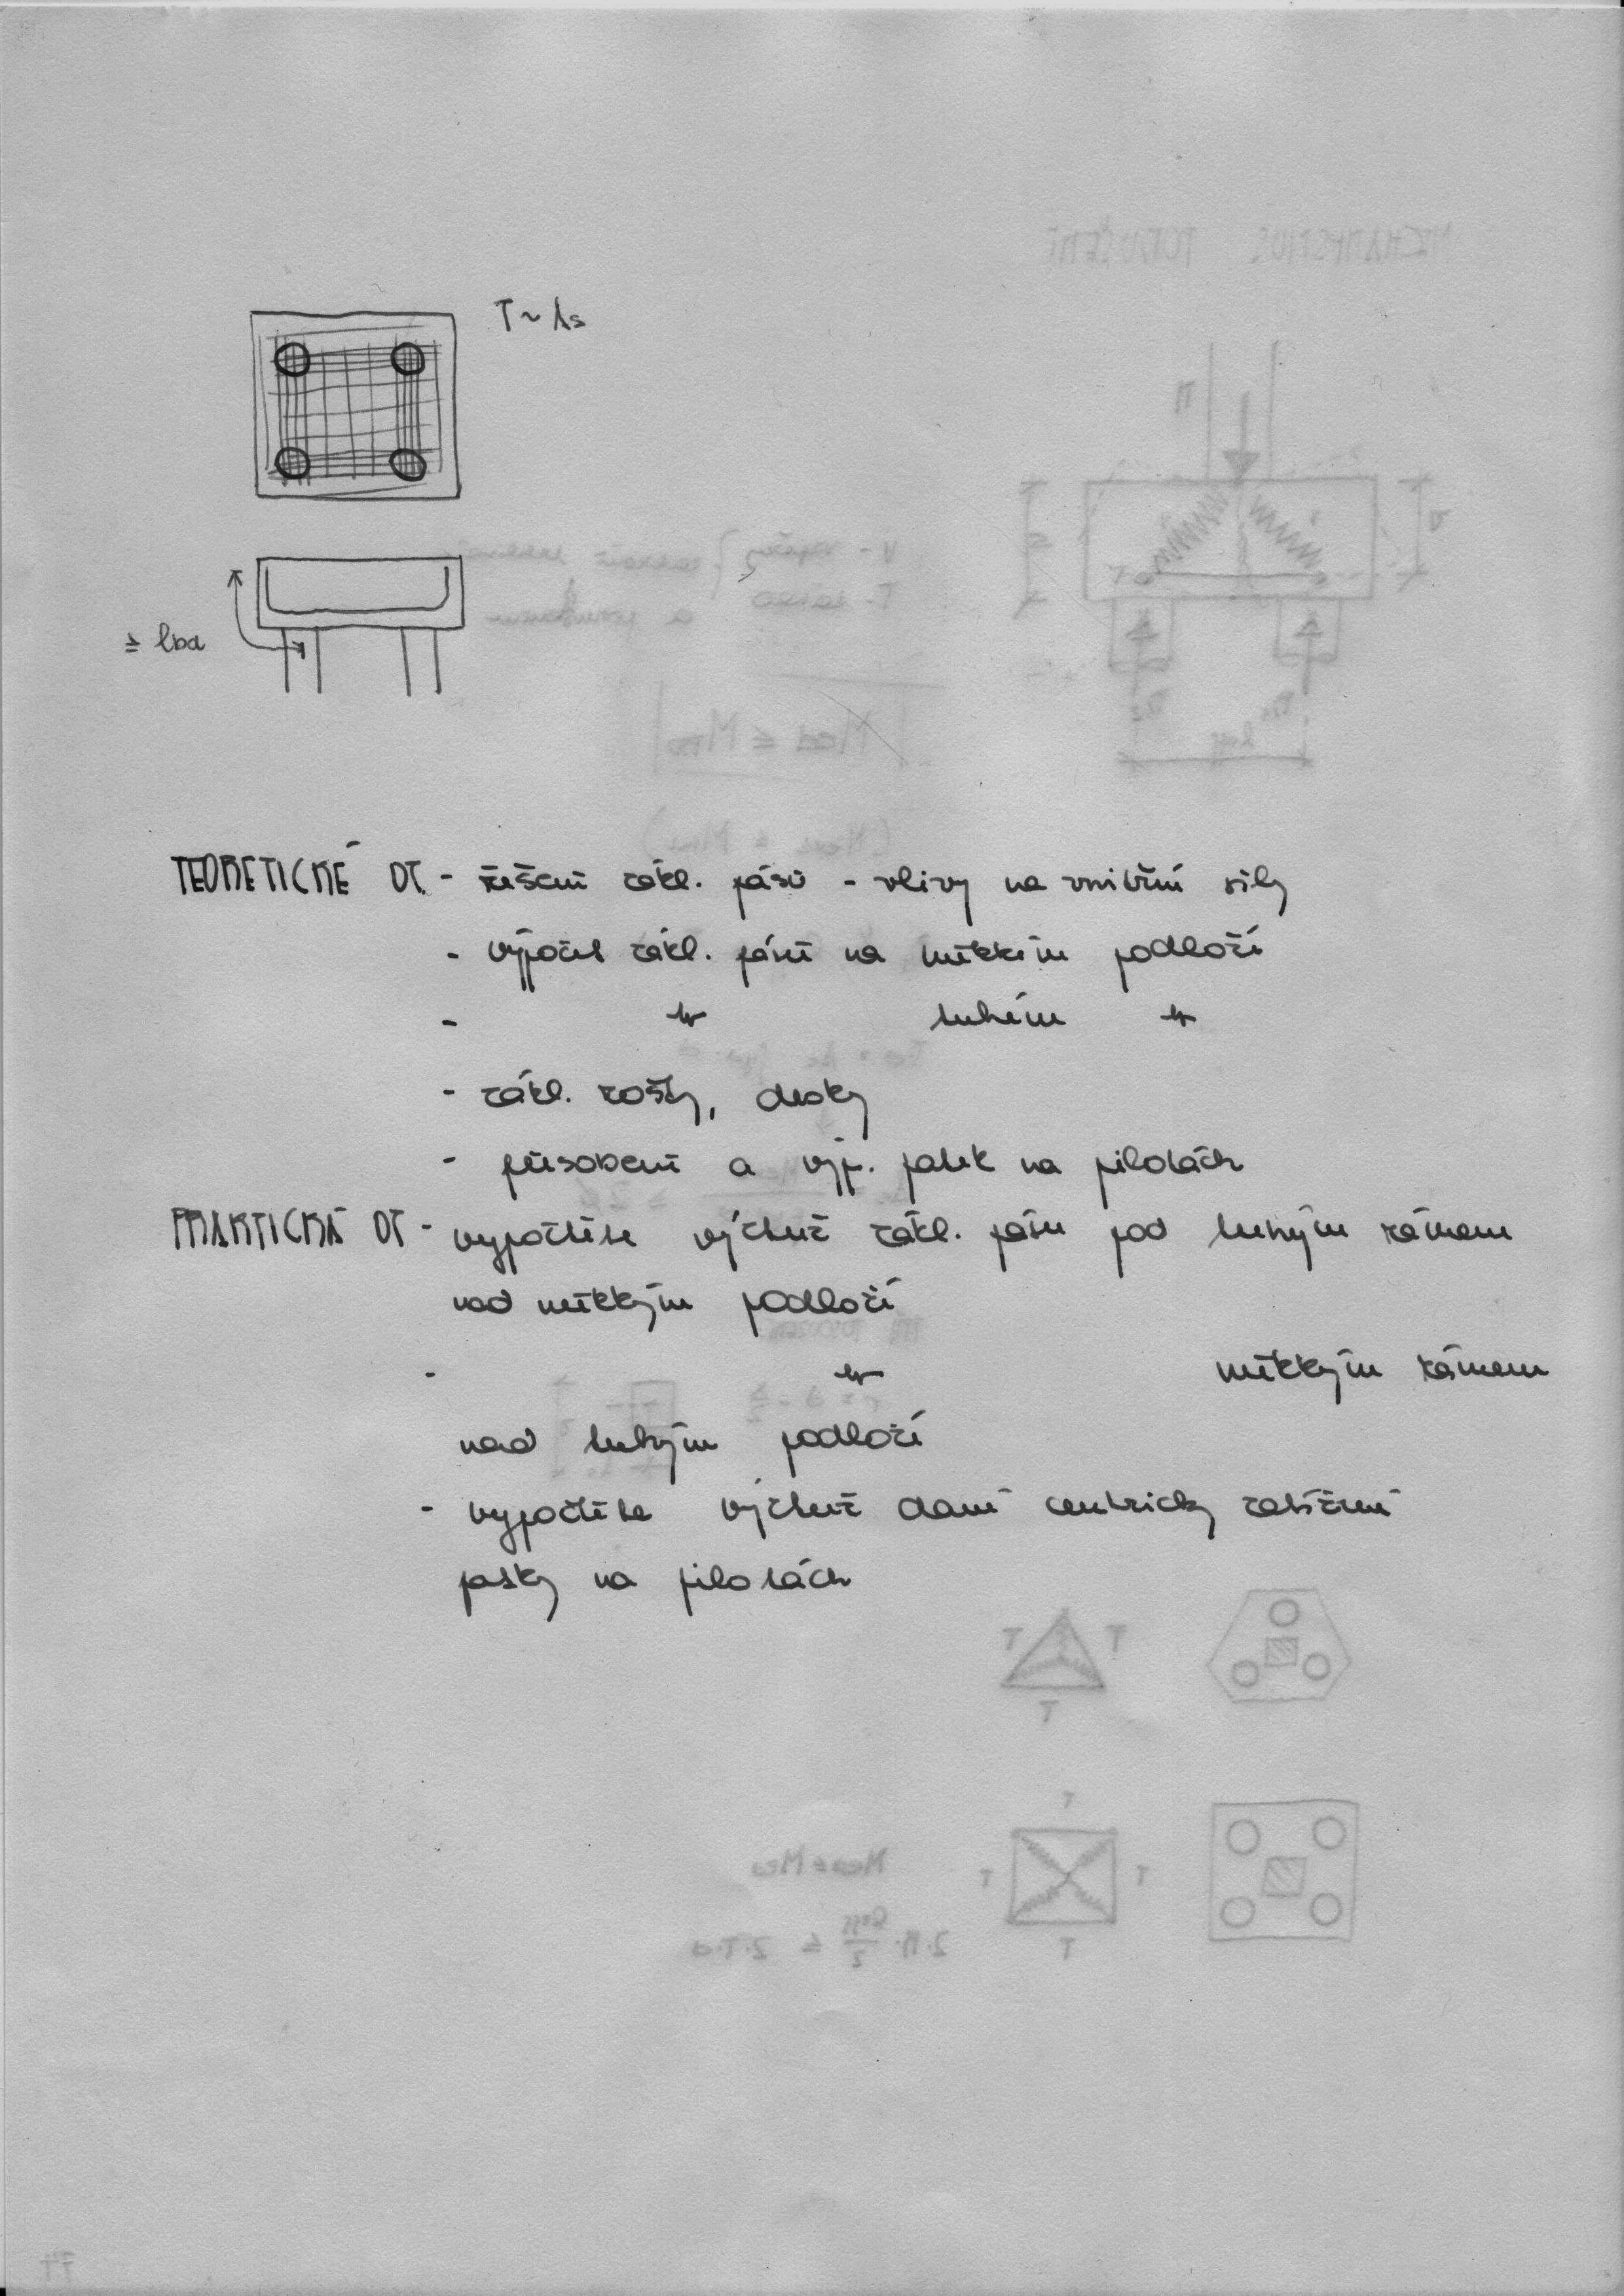 T ~ As
≥ lbd
TEORETICKÉ OT. - řešení zákl. pásů - vlivy na vnitřní síly
- výpočet zákl. pásů na měkkém podloží
- -||- tuhém -||-
- zákl. rošty, desky
- působení a výp. patek na pilotách
PRAKTICKÁ OT - vypočtěte výztuž zákl. pásu pod tuhým rámem
nad měkkým podloží
- -||- měkkým rámem
nad tuhým podloží
- vypočtěte výztuž dané centricky zatížené
patky na pilotách